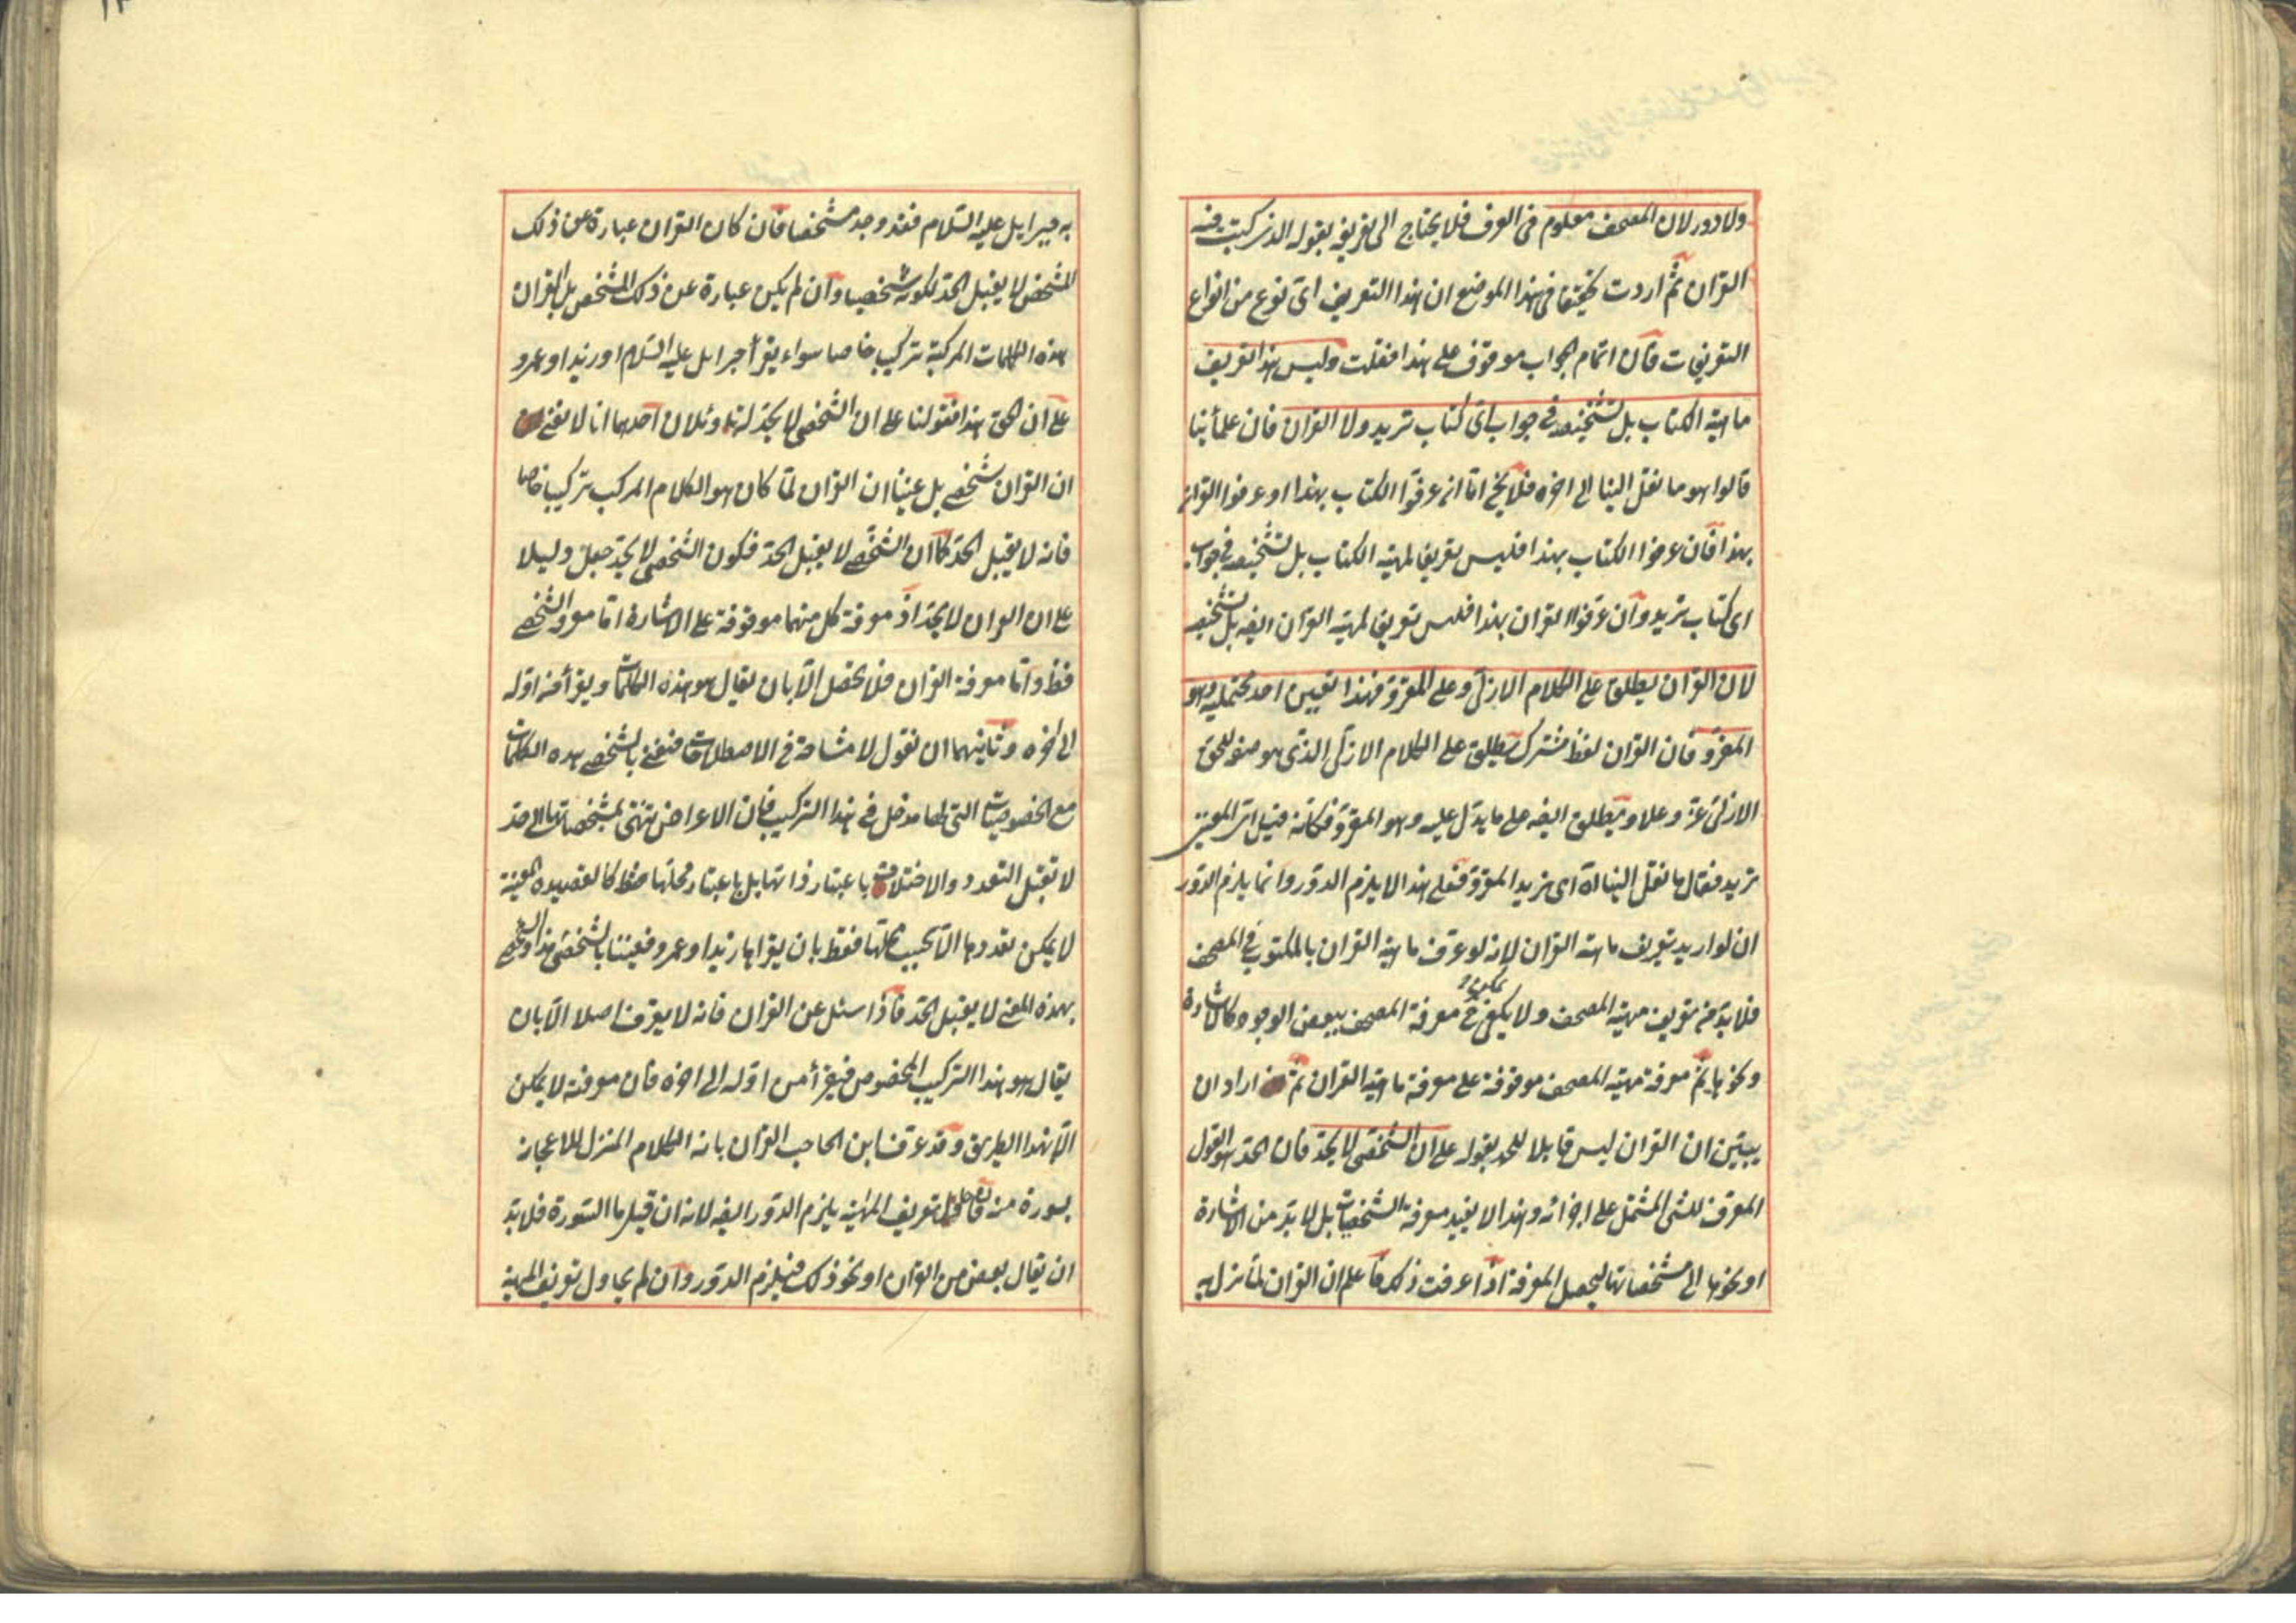 ولا دور لان المصحف معلوم فى العرف فلا يحتاج الى تعريفه بقوله الذى كتب فيه
القران ثم اردت تحقيقا فى هذا الموضع ان هذا التعريف اى نوع من انواع
التعريفات فان اتمام الجواب موقوف على هذا فقلت وليس هذا تعريف
ماهية الكتاب بل تشخيصه فى جواب اى كتاب تريد ولا القران فان علمائنا
قالوا هو ما نقل الينا الى اخره فلا يخ اما ان عرفوا الكتاب بهذا او عرفوا القران
بهذا فان عرفوا الكتاب بهذا فليس تعريفا لمهية الكتاب بل تشخيصه فى جواب
اى كتاب تريد وان عرفوا القران بهذا فليس تعريفا لمهية القران ايضه بل تشخيصه
لان القران يطلق على الكلام الازلى وعلى المقروّ فهذا تعيين احد محتمليه وهو
المقروّ فان القران لفظ مشترك يطلق على الكلام الازلى الذى هو صفة للحق
الازلى عز وعلا ويطلق ايضه على ما يدل عليه وهو المقروّ فكانه قيل اى المعنيين
تريد فقال ما نقل الينا اه اى نريد المقروّ فعلى هذا لا يلزم الدور وانما يلزم الدور
ان لو اريد تعريف ماهية القران لانه لو عرف ماهية القران بالمكتوب فى المصحف
فلا بد من تعريف مهية المصحف ولا يكفى ح معرفة المصحف ببعض الوجوه كالاشارة
ونحوها ثم معرفة مهية المصحف موقوفة على معرفة ماهية القران ثم اراد ان
يبين ان القران ليس قابلا للحد بقوله على ان الشخصى لا يحد فان الحد هو القول
المعرف للشئ المشتمل على اجزائه وهذا لا يفيد معرفة الشخصيات بل لا بد من الاشارة
او نحوها الى مشخصاتها ليحصل المعرفة اذا عرفت ذلك فاعلم ان القران لما نزل به
به جبرايل عليه السلام فقد وجد مشخصا فان كان القران عبارة عن ذلك
المشخص لا يقبل الحد لكونه شخصيا وان لم يكن عبارة عن ذلك المشخص بل القران
هذه الكلمات المركبة تركيبا خاصا سواء يقرأ جبرايل عليه السلام او زيد او عمرو
على ان الحق هذا فقولنا على ان الشخصى لا يحد له تاويلان احدهما انا لا نعنى
ان القران شخصى بل عنينا ان القران لما كان هو الكلام المركب تركيبا خاصا
فانه لا يقبل الحد كما ان الشخصى لا يقبل الحد فكون الشخصى لا يحد جعل دليلا
على ان القران لا يحد اذ معرفة كل منهما موقوفة على الاشارة اما معرفة الشخصى
فظ واما معرفة القران فلا يحصل الا بان يقال هو هذه الكلمات ويقرأ من اوله
الى اخره وثانيهما ان نقول لا مشاحة فى الاصطلاحات فنعنى بالشخصى هذه الكلمات
مع الخصوصيات التى لها مدخل فى هذا التركيب فان الاعراض تنتهى بمشخصاتها الى حد
لا تقبل التعدد والاختلاف باعتبار ذاتها بل باعتبار محلها فقط كالقصيدة المعينة
لا يمكن تعددها الا بحسب محلها فقط بان يقرأها زيد او عمرو فعنينا بالشخصى هذا والشخصى
بهذه المعنى لا يقبل الحد فاذا سئل عن القران فانه لا يعرف اصلا الا بان
يقال هو هذا التركيب المخصوص فيقرأ من اوله الى اخره فان معرفته لا يمكن
الا بهذا الطريق وقد عرف ابن الحاجب القران بانه الكلام المنزل للاعجاز
بسورة منه فان حاول تعريف المهية يلزم الدور ايضه لانه ان قيل ما السورة فلا بد
ان يقال بعض من القران او نحو ذلك فيلزم الدور وان لم يحاول تعريف المهية